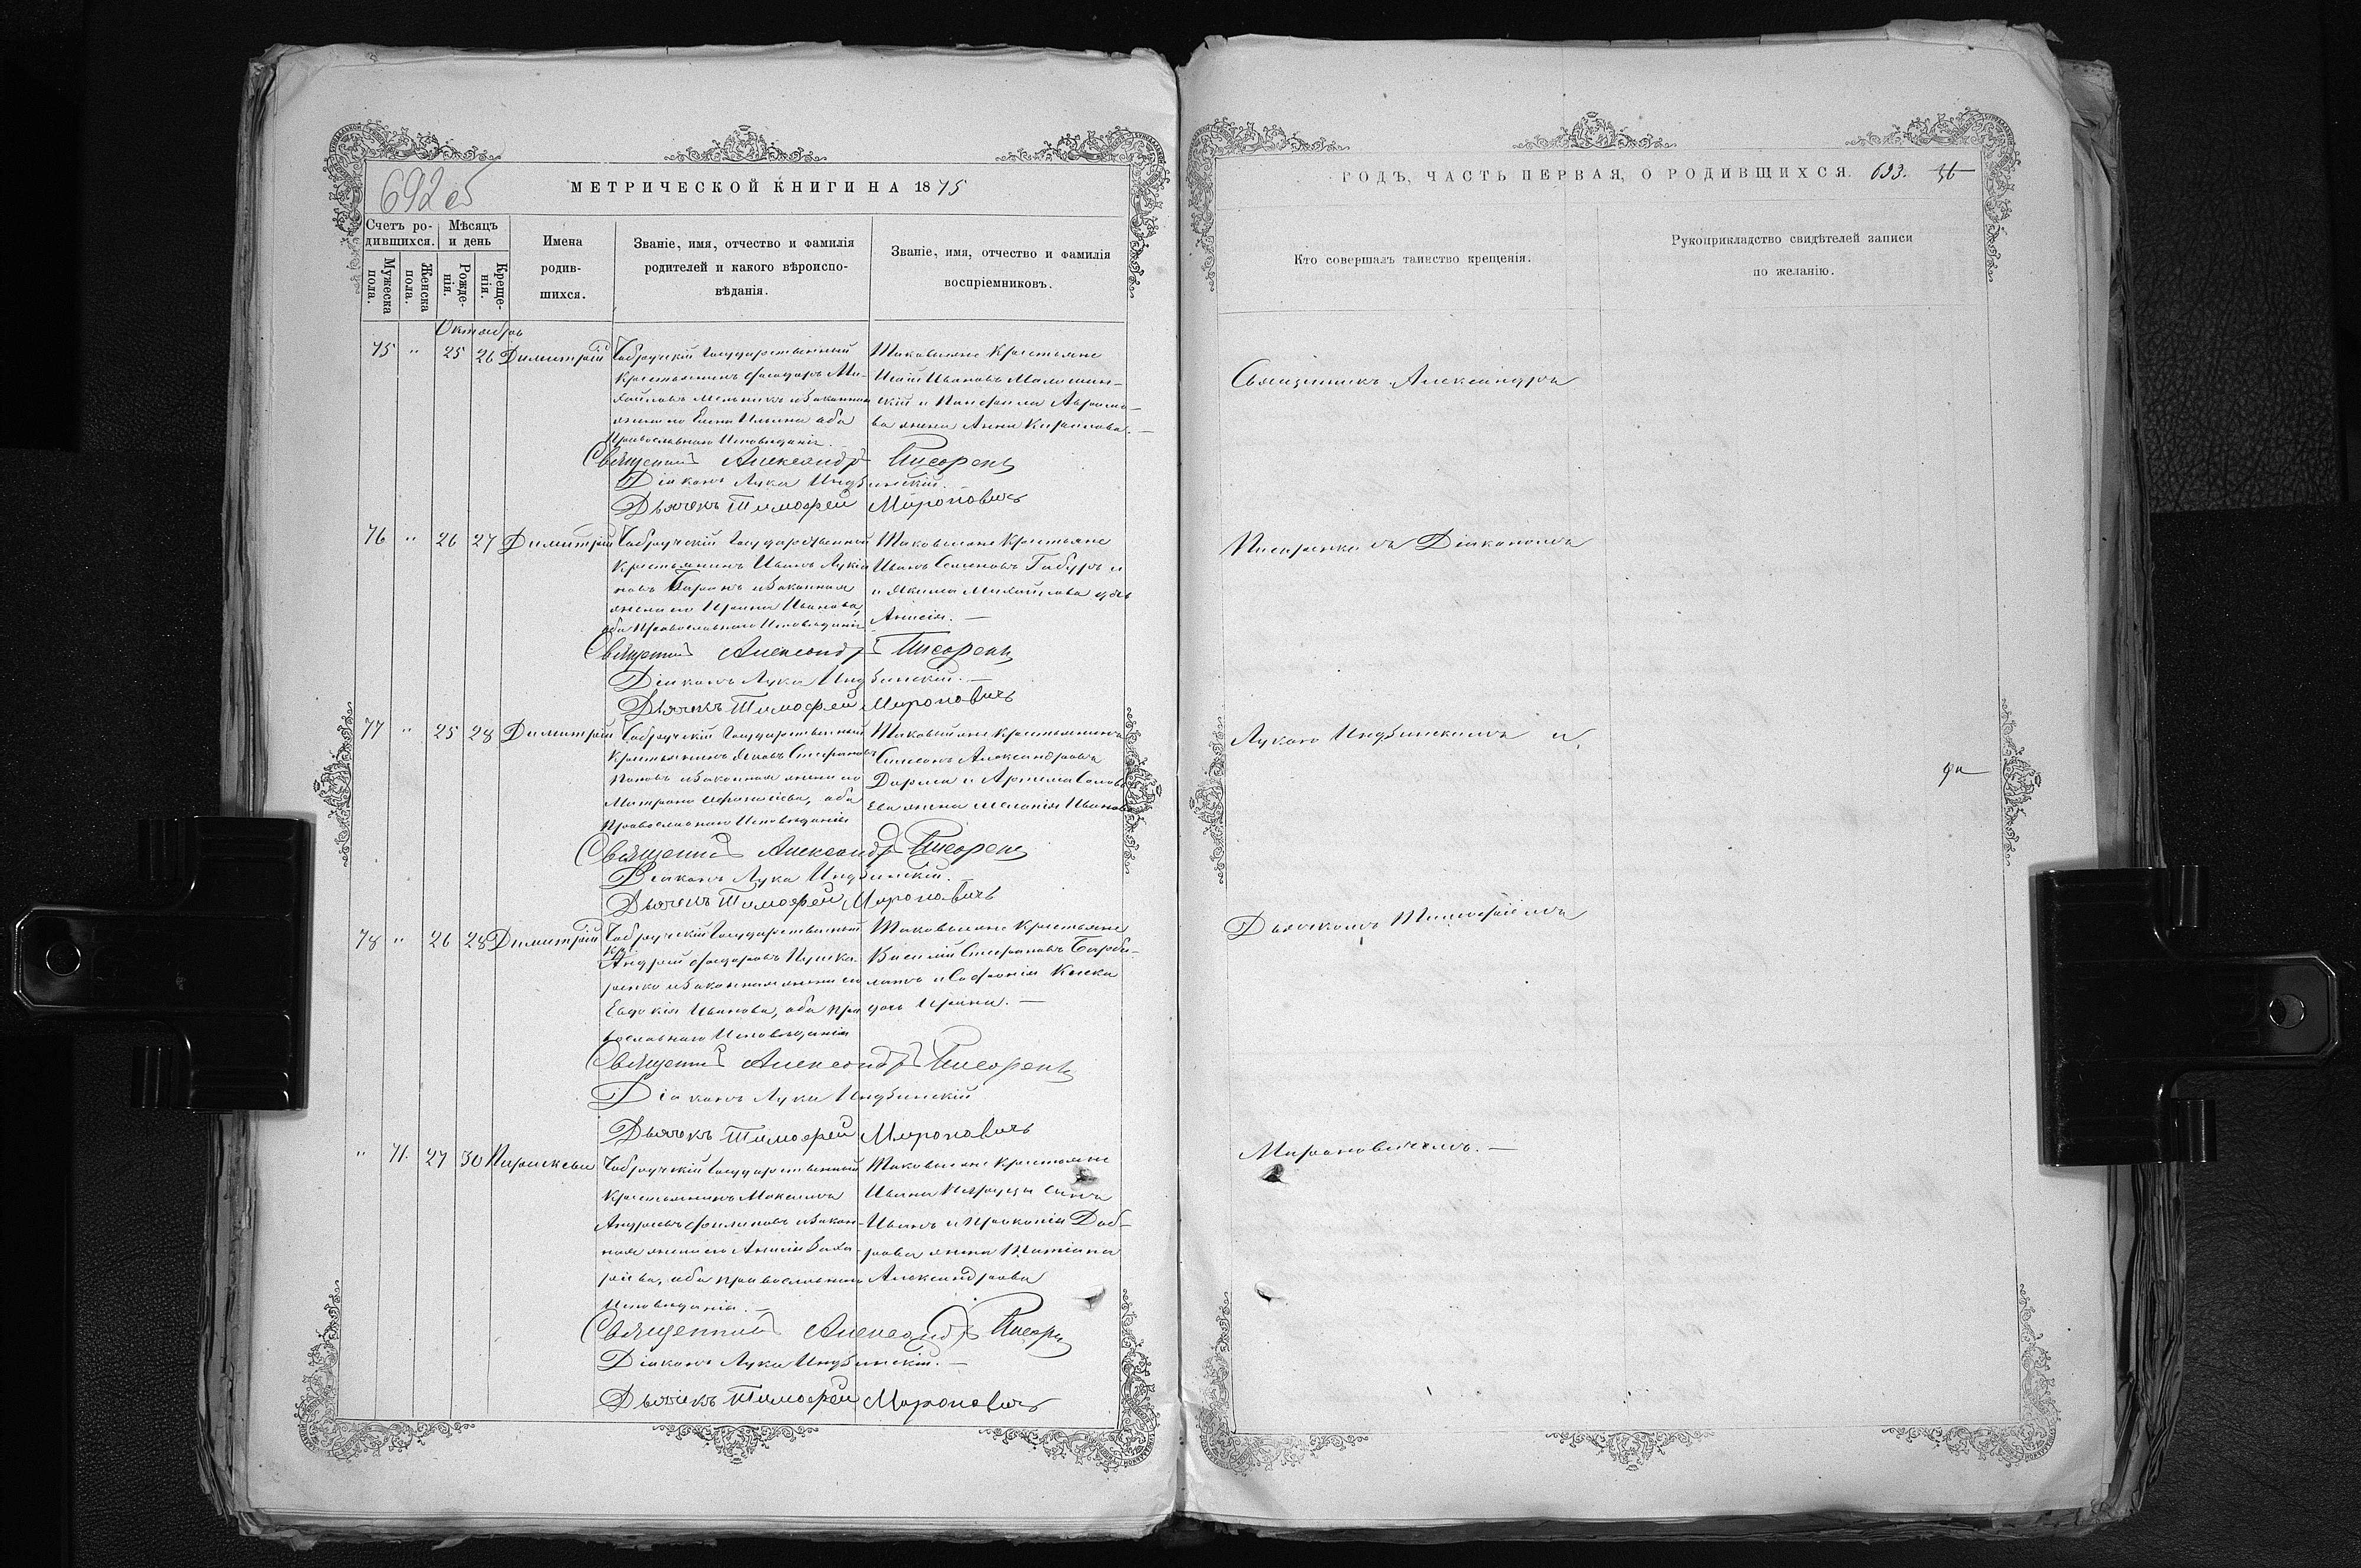 692 об
МЕТРИЧЕСКОЙ КНИГИ НА 1875
Счетъ ро-
дившихся.
Мужеска
пола.
Женска
пола.
Мѣсяцъ
и день
Рожде-
нія.
Креще-
нія.
Имена
родив-
шихся.
Званіе, имя, отчество и фамилія
родителей и какого вѣроиспо-
вѣданія.
Званіе, имя, отчество и фамилія
воспріемниковъ.
Октябрь
75 " 25 26 Димитрій
Чобручскій Государственный
Крестьянинъ Ѳеодоръ Ми-
хайловъ Мельникъ и законная
жена его Елена Ильина оба
Православнаго Исповѣданія.
Таковыеже Крестьяне
Иванов
скій и Аврамо-
ва жена Анна Кирилова.
Священникъ Александръ Писаренко
Діаконъ Лука Индзинскій.
Дьячекъ Тимофей Мироновичъ
76 " 26 27 Димитрій
Чобручскій Государственный
Крестьянинъ Иванъ Лукіа
новъ и законная
жена его Ирина Иванова,
оба Православнаго Исповѣданія
Таковыеже Крестьяне
Иванъ Семеновъ Габуръ и
и Якима Михайлова дочь
Анисія.
Священникъ Александръ Писаренко
Діаконъ Лука Индзинскій.
Дьячекъ Тимофей Мироновичъ
77 " 25 28 Димитрій
Чобручскій Государственный
Крестьянинъ Яковъ Стефановъ
Поповъ и законная жена его
Матрона Аѳанасіева, оба
Православнаго Исповѣданія
Крестьянинъ
Симеонъ Александровъ
и Артема
ева жена Меланія Иванова
Священникъ Александръ Писаренко
Діаконъ Лука Индзинскій.
Дьячекъ Тимофей Мироновичъ
78 " 26 28 Димитрій
Чобручскій Государственный
кр.
Андрей Ѳеодоровъ Пушка-
ренко и законная жена его
Евдокія Иванова, оба пра
вославнаго Исповѣданія
Таковыеже Крестьяне
Василій Стефановъ Барба-
латъ и Софронія
дочь Ирина.
Священникъ Александръ Писаренко
Діаконъ Лука Индзинскій
Дьячекъ Тимофей Мироновичъ
" 71. 27 30 Параскева
Чобручскій Государственный
Крестьянинъ Максимъ
Андреевъ Филиповъ и закон-
ная жена его Анисія Заха-
ріева, оба православнаго
Исповѣданія.
Таковыеже Крестьяне
Ивана сынъ
Иванъ и Прокопія Доб-
рова жена Татіана
Александрова
Священникъ Александръ Писаренко
Діаконъ Лука Индзинскій.
Дьячекъ Тимофей Мироновичъ
ГОДЪ, ЧАСТЬ ПЕРВАЯ, О РОДИВШИХСЯ. 693. 36
Кто совершалъ таинство крещенія.
Рукоприкладство свидѣтелей записи
по желанію.
Священникъ Александръ
Писаренко съ Діакономъ
Лукою Индзинскимъ и
Дьячкомъ Тимофіемъ
Мироновичемъ.